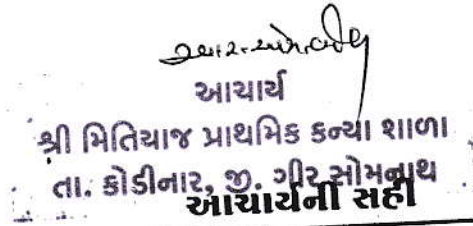 આચાર્ય
શ્રી મિતિયાજ પ્રાથમિક કન્યા શાળા
તા. કોડીનાર, જી. ગીર સોમનાથ
આચાર્યની સહી